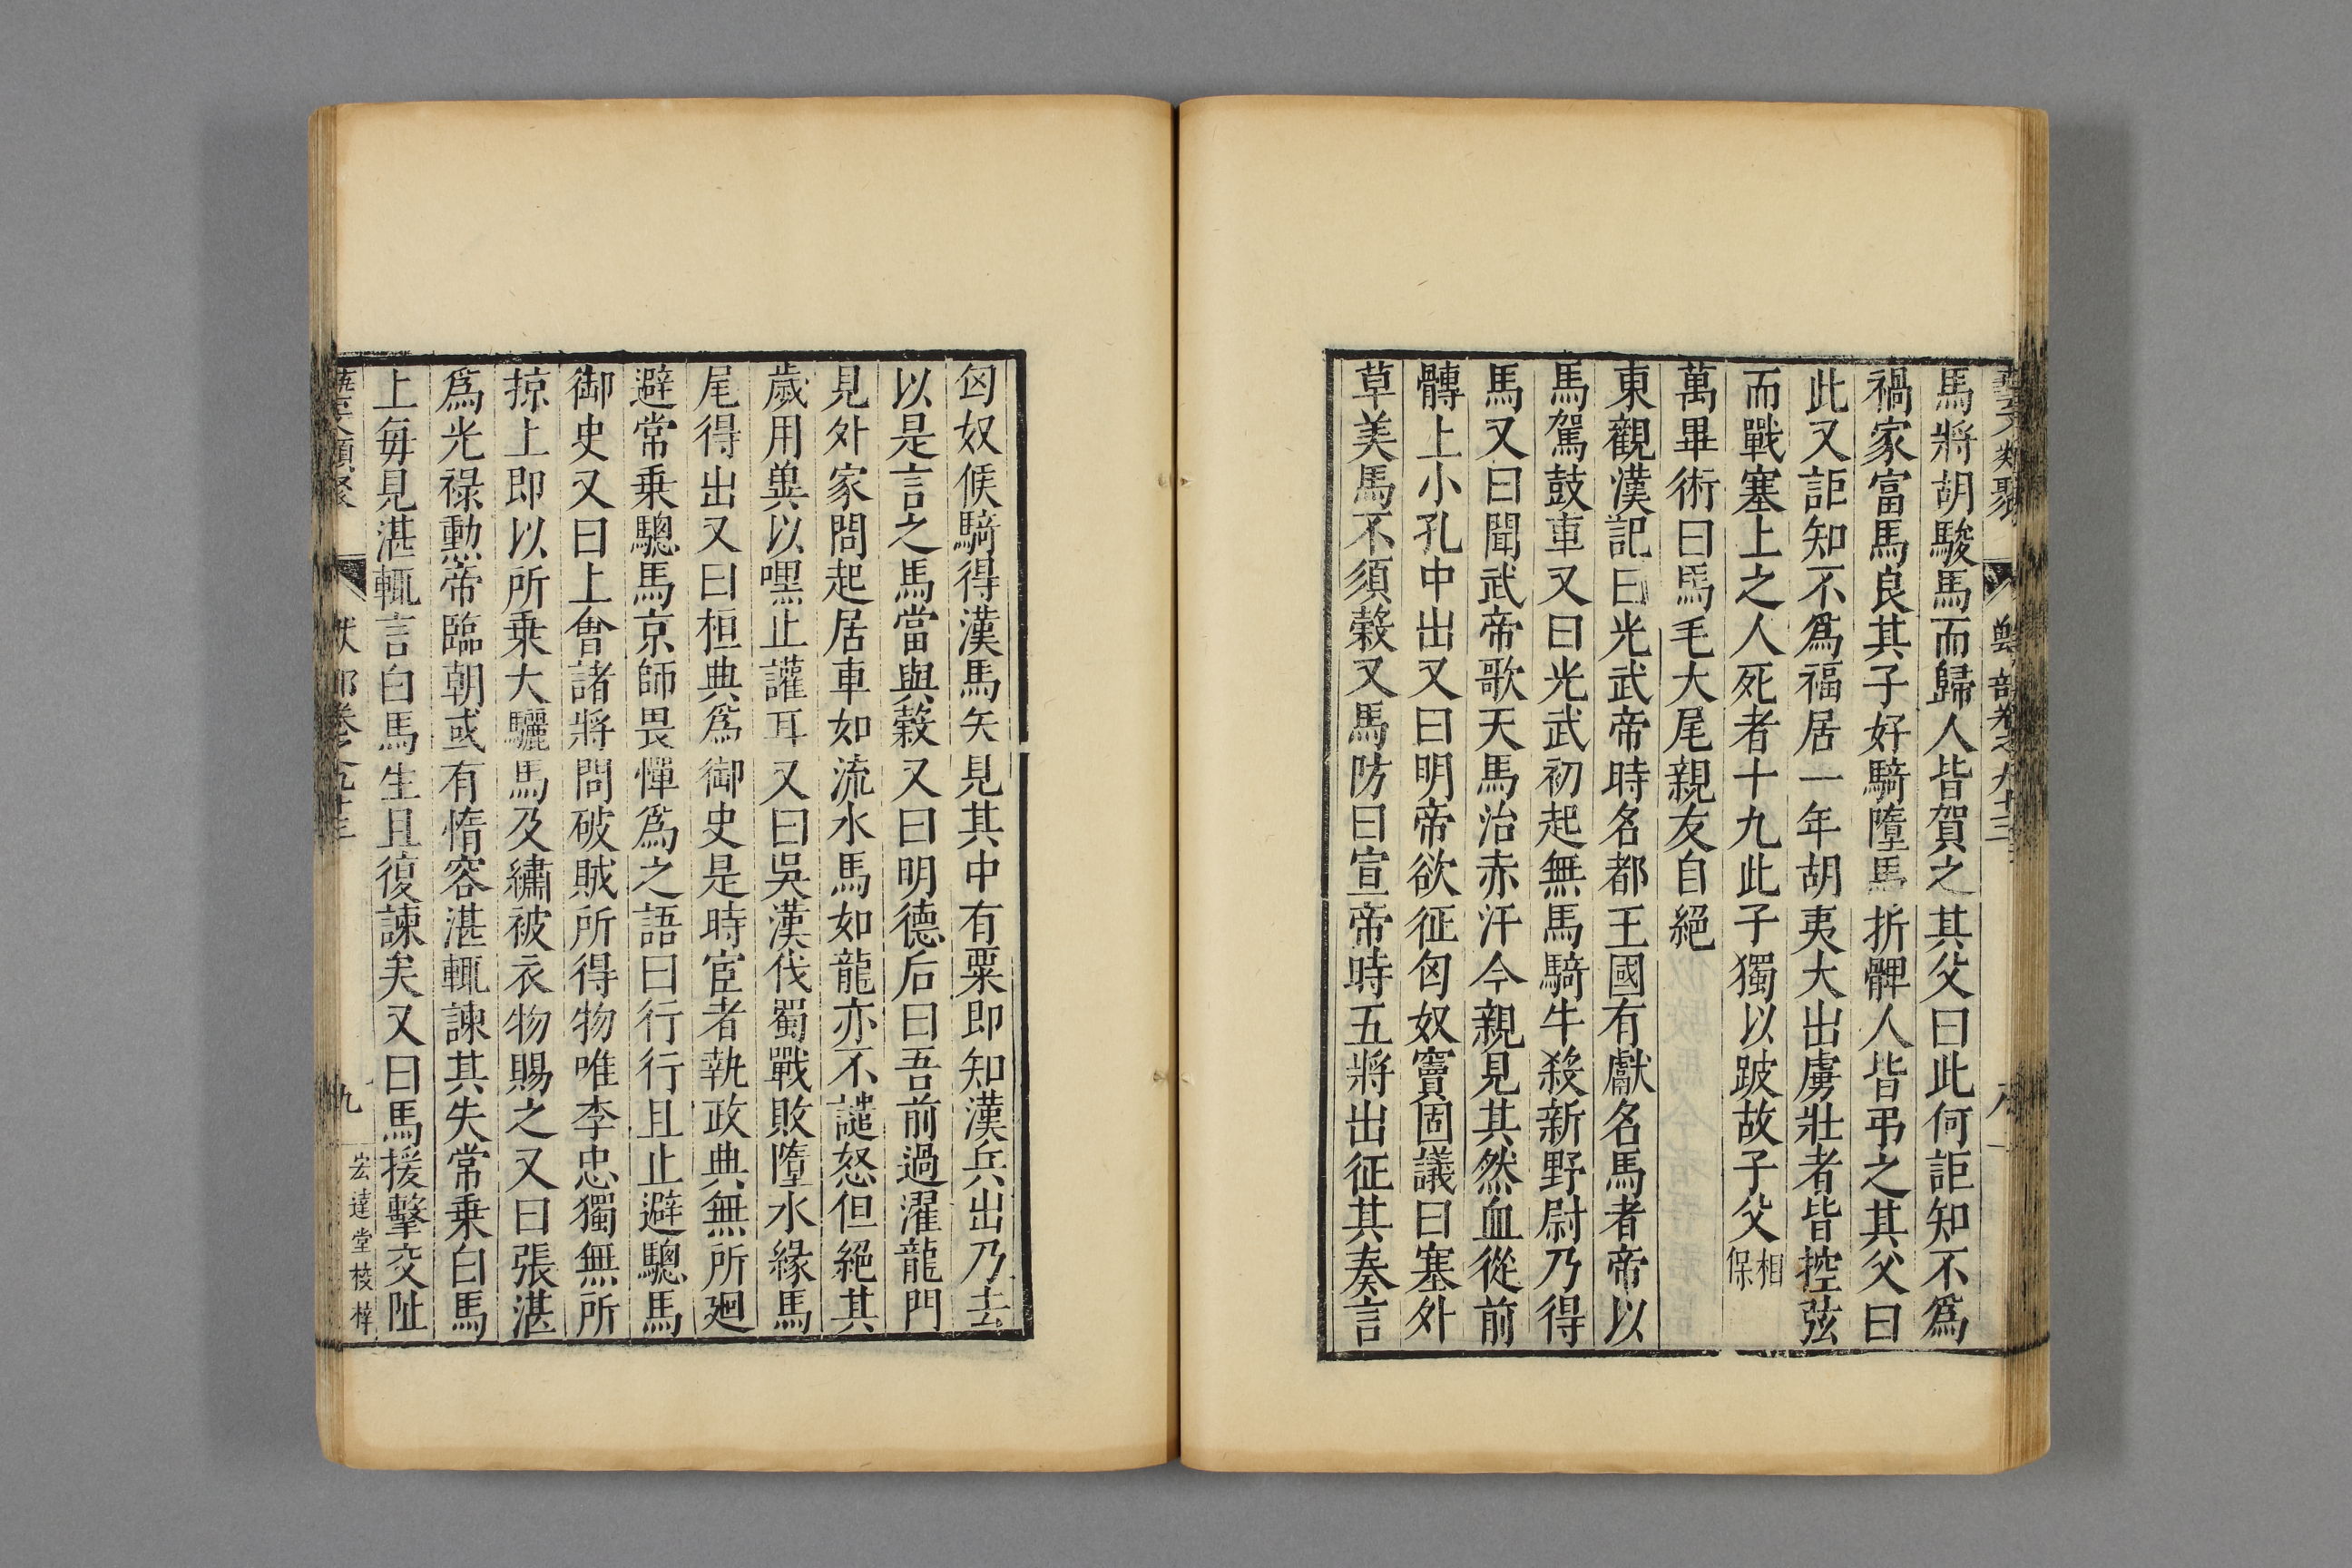 藝文類聚 獸部卷之九十三 八
馬將胡駿馬而歸人皆賀之其父曰此何詎知不爲
禍家富馬良其子好騎墮馬折髀人皆弔之其父曰
此又詎知不爲福居一年胡夷大出虜壯者皆控弦
而戰塞上之人死者十九此子獨以跛故子父相保
萬畢術曰馬毛大尾親友自絕
東觀漢記曰光武帝時名都王國有獻名馬者帝以
馬駕鼓車又曰光武初起無馬騎牛殺新野尉乃得
馬又曰聞武帝歌天馬治赤汗今親見其然血從前
髆上小孔中出又曰明帝欲征匈奴竇固議曰塞外
草美馬不須榖又馬防曰宣帝時五將出征其奏言
匈奴候騎得漢馬矢見其中有粟即知漢兵出乃去
以是言之馬當與榖又曰明德后曰吾前過濯龍門
見外家問起居車如流水馬如龍亦不譴怒但絕其
歲用兾以嘿止讙耳又曰吳漢伐蜀戰敗墮水緣馬
尾得出又曰桓典爲御史是時宦者執政典無所廻
避常乗驄馬京師畏憚爲之語曰行行且止避驄馬
御史又曰上會諸將問破賊所得物唯李忠獨無所
掠上即以所乗大驪馬及繡被衣物賜之又曰張湛
爲光祿勳帝臨朝或有惰容湛輒諫其失常乗白馬
上每見湛輒言白馬生且復諫矣又曰馬援擊交阯
藝文類聚 獸部卷之九十三 九 宏達堂校梓